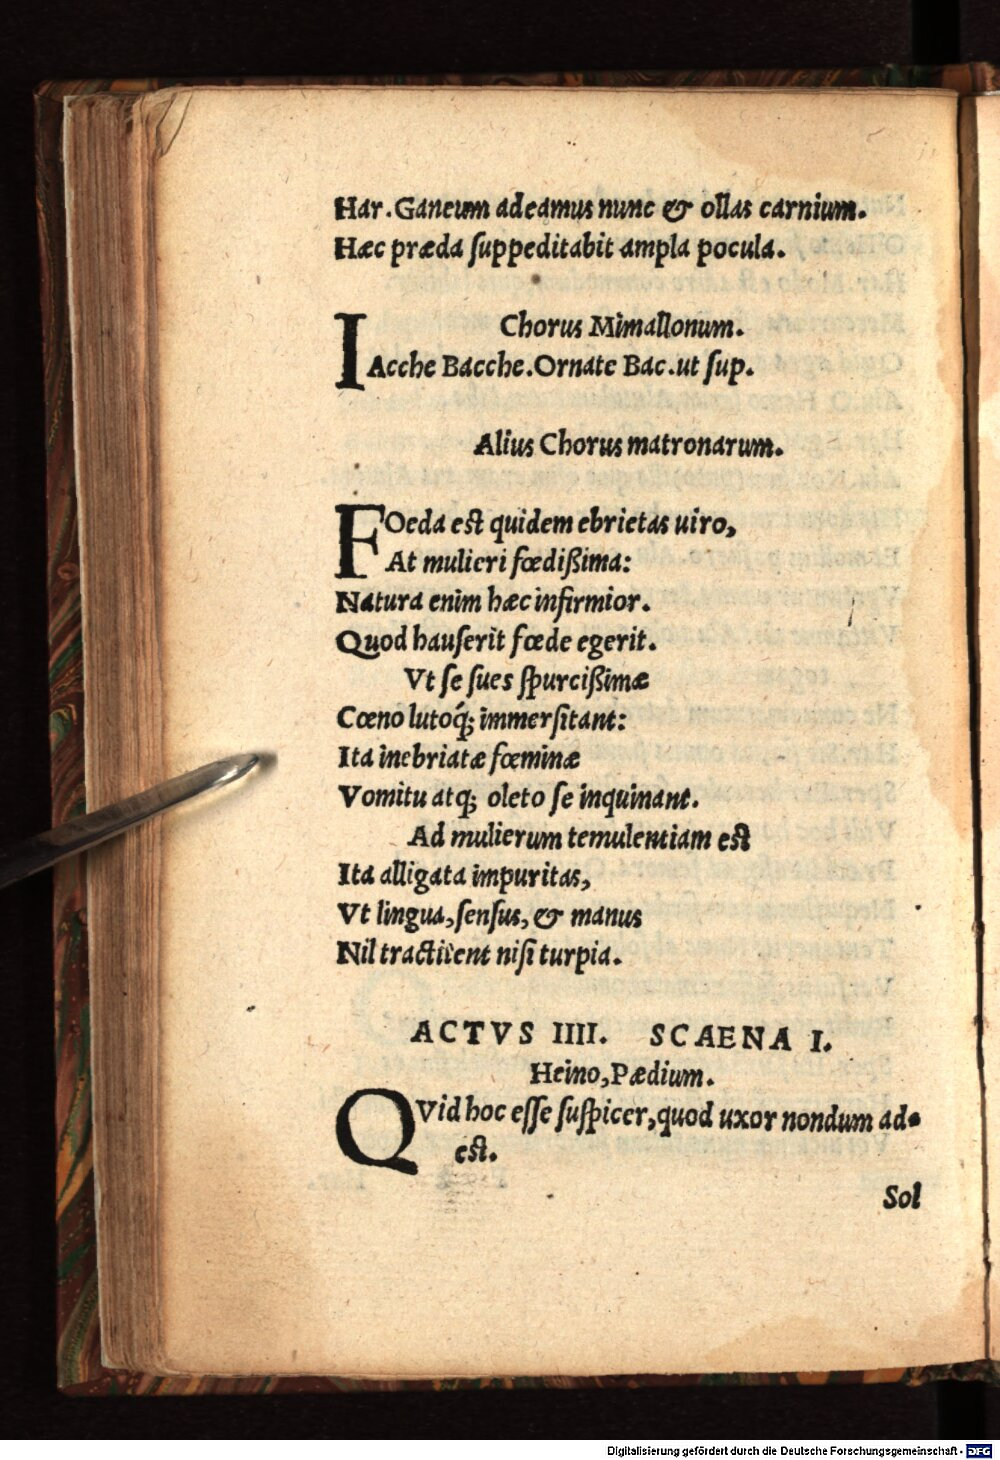 Har. Ganeum adeamus nunc & ollas carnium.
Hæc præda suppeditabit ampla pocula.
Chorus Mimallonum.
IAcche Bacche. Ornate Bac. ut sup.
Alius Chorus matronarum.
FOeda est quidem ebrietas uiro,
At mulieri fœdißima:
Natura enim hæc infirmior.
Quod hauserit fœde egerit.
Vt se sues spurcißimæ
Cœno lutoq́; immersitant:
Ita inebriatæ fœminæ
Vomitu atq; oleto se inquinant.
Ad mulierum temulentiam est
Ita alligata impuritas,
Vt lingua, sensus, & manus
Nil tractitent nisi turpia.
ACTVS IIII. SCAENA I.
Heino, Pædium.
QVid hoc esse suspicer, quod uxor nondum ad-
est.
Sol
Digitalisierung gefördert durch die Deutsche Forschungsgemeinschaft - DFG